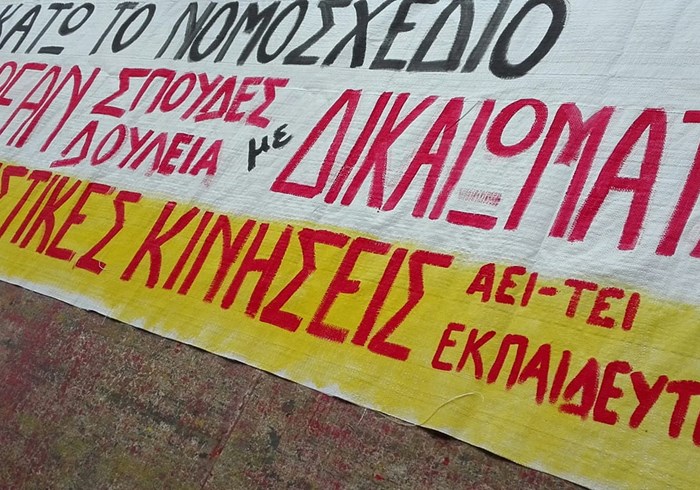 ΚΑΤΩ ΤΟ ΝΟΜΟΣΧΕΔΙΟ
ΣΠΟΥΔΕΣ
ΔΟΥΛΕΙΑ με ΔΙΚΑΙΩΜΑΤ
ΣΤΙΚΕΣ ΚΙΝΗΣΕΙΣ ΑΕΙ-ΤΕΙ
ΕΚΠΑΙΔΕΥΤ